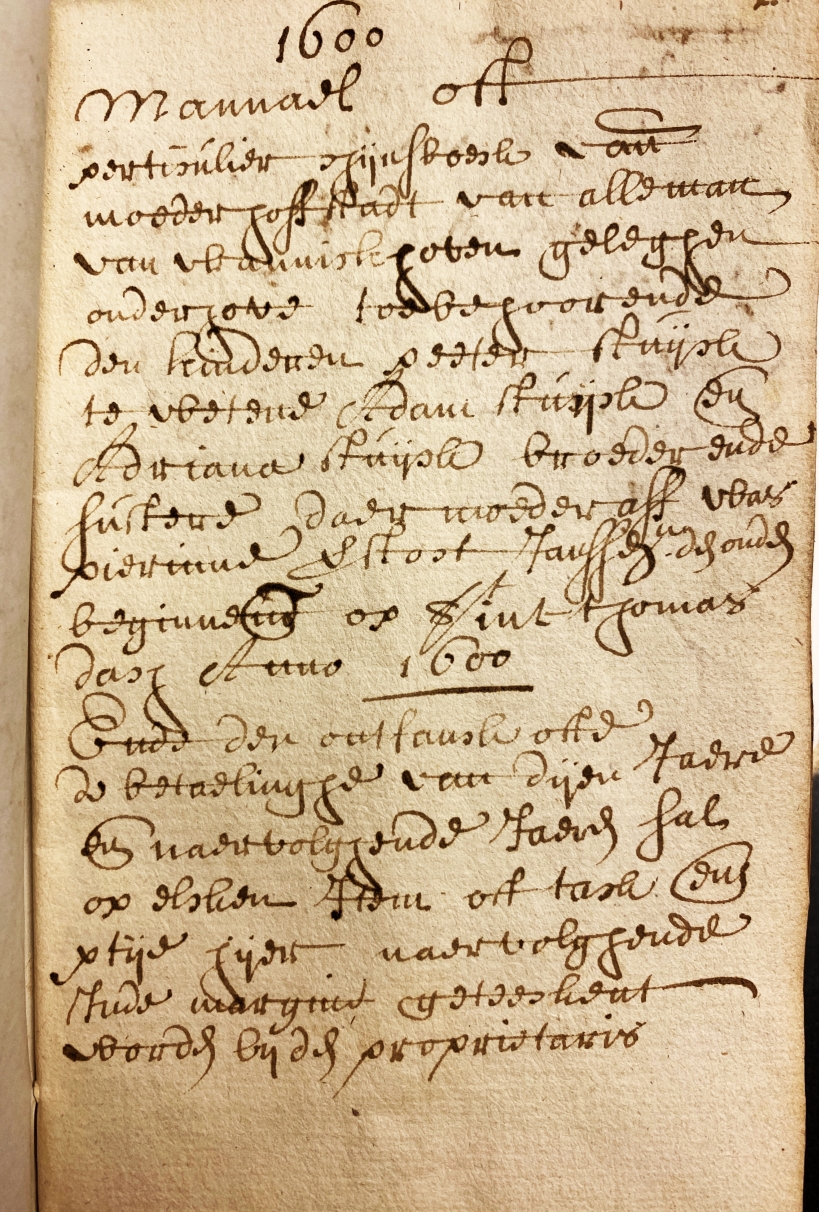 1600
Mannael oft
perticulier chijnsboeck van
moederhoffstadt van alleman
van wbannickhoven geleghen
onder hove toebehoorende
den kinderen peeter stuijck
te wetene Adam stuijck en
Adriana stuijck broeder ende
sustere daer moeder aff was
pierinne Janssen den ouden
beginnende op Sint thomas
dach Anno 1600
Ende den ontfanck ofte
de betaelinghe van dijen Jaere
en naervolghende Jaeren sal
op elcken Item oft tack en
ptije hijer naervolghende
Inde margine geteeckent
worden bij den proprietaris